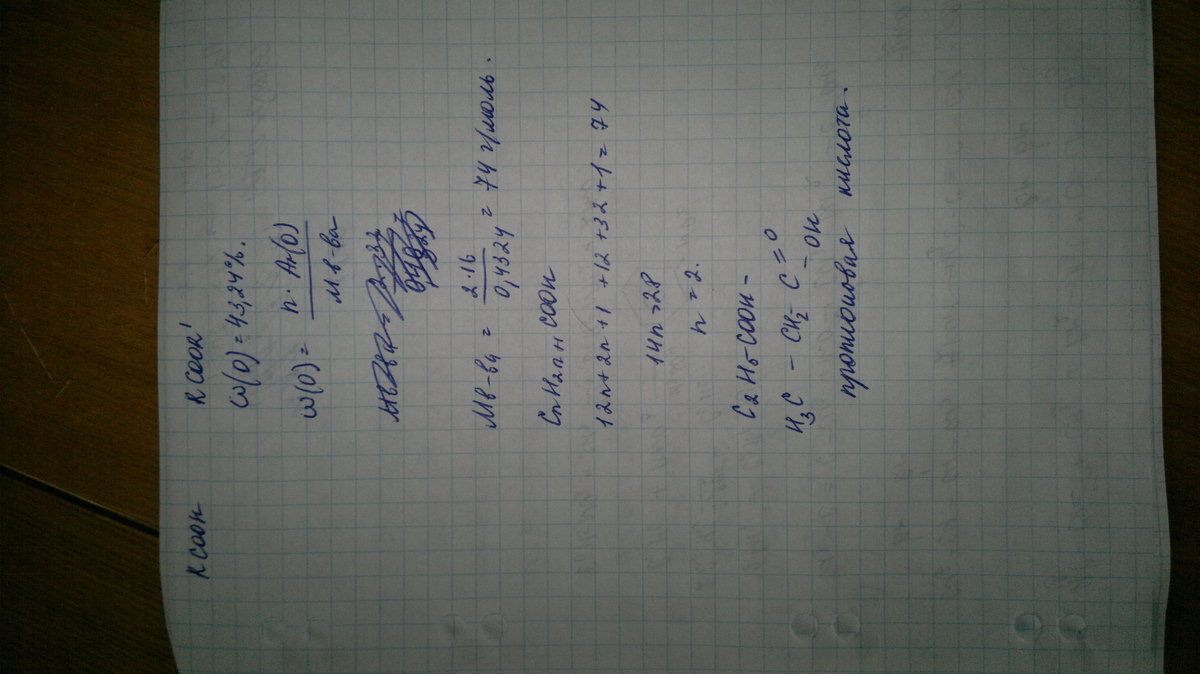 RCOOH RCOOR'
ω(O) = 43,24%.
ω(O) = n · Ar(O) / M в-ва
M в-ва = 2·16 / 0,4324 = 74 г/моль.
CnH2n+1 COOH
12n + 2n + 1 + 12 + 32 + 1 = 74
14n = 28
n = 2.
C2H5-COOH -
H3C - CH2 - C = O
- OH
пропионовая кислота.